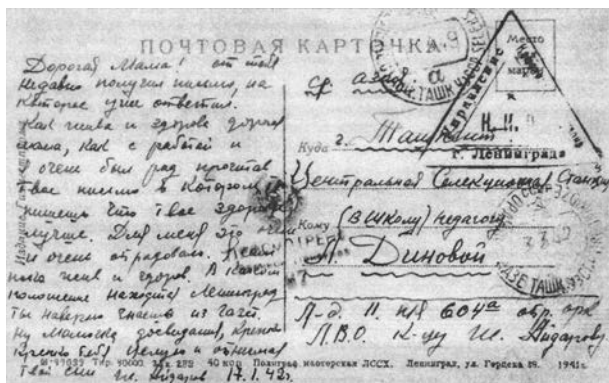 ПОЧТОВАЯ КАРТОЧКА
Дорогая Мама! от тебя
недавно получил письмо, на
которое уже ответил.
Как жива и здорова дорогая
мама, как с работой и
я очень был рад прочитав
твое письмо в котором
пишешь что твое здоровье
лучше. Для меня это очень
и очень отрадно. Я
пока жив и здоров. В каком
положение находится Ленинград
ты наверно знаешь из газет.
Ну мамочка досвидания, крепко
крепко тебя целую и обнимаю
твой сын Ш. Айдаров 17.1.42г.
Место
марки
г. Ленинграда
Куда г. Ташкент
Центральная Селекционная Станция
Кому (в школу) педагогу
Диновой
Л-д. 11. п/я 604а обр.
Л.В.О. К-цу Ш. Айдарову
Тир. 90000 Зак. 40 коп Полиграф мастерская ЛССХ. Ленинград, ул. Герцена 1941г.